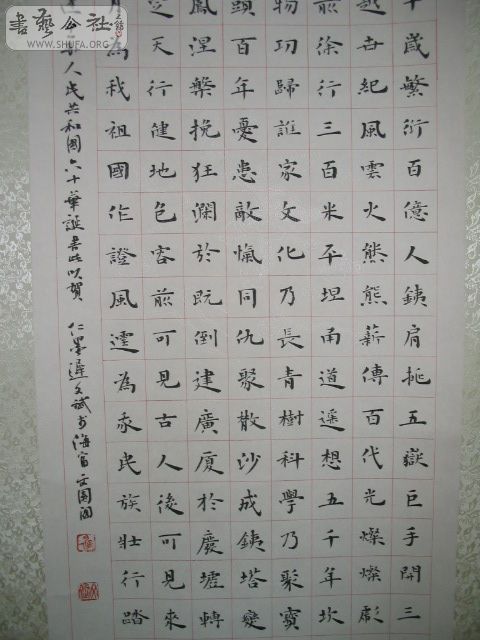 千歲繁衍百億人銕肩挑五嶽巨手開三
越世紀風雲火熊熊薪傳百代光燦燦彪
前徐行三百米平坦甬道遥想五千年坎
物功歸誰家文化乃長青樹科學乃聚寶
頭百年憂患敵愾同仇聚散沙成銕塔變
鳳涅槃挽狂瀾於既倒建廣厦於廢墟轉
之天行健地色容前可見古人後可見來
月為我祖國作證風雲為我民族壯行踏
人民共和國六十華誕書此以賀
書藝公社
WWW.SHUFA.ORG